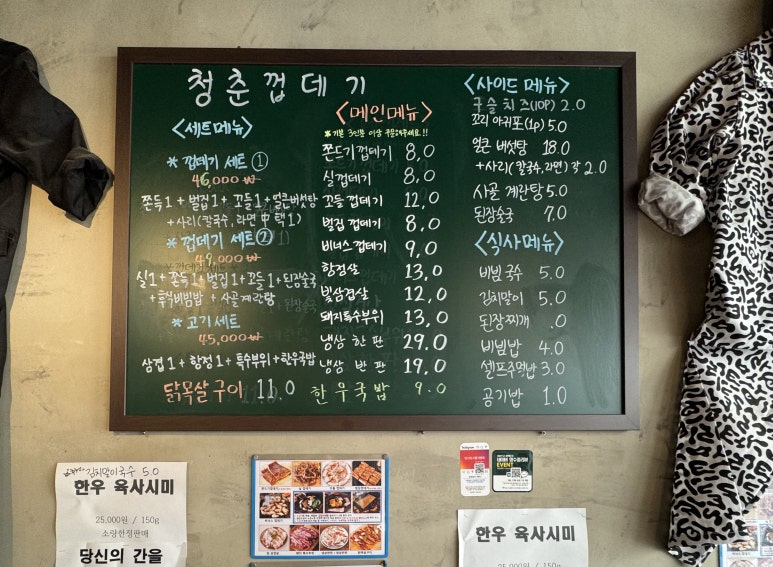 청춘껍데기
<세트메뉴>
* 껍데기 세트 ①
46,000₩
쫀득1 + 벌집1 + 꼬들1 + 얼큰버섯탕
+ 사리(칼국수, 라면 中 택1)
* 껍데기 세트②
49,000₩
실1 + 쫀득1 + 벌집1 + 꼬들1 + 된장술국
+ 사골계란탕
* 고기세트
45,000₩
삼겹1 + 항정1 + 특수부위 + 한우국밥
닭목살구이 11.0
<메인메뉴>
* 기본 3인분 이상 주문해주세요.!!
쫀드기껍데기 8.0
실껍데기 8.0
꼬들껍데기 12.0
벌집껍데기 8.0
비너스껍데기 9.0
항정살 13.0
빛삼겹살 12.0
돼지특수부위 13.0
냉삼 한 판 29.0
냉삼 반 판 19.0
한우국밥 9.0
<사이드 메뉴>
구슬치즈(10P) 2.0
꼬리 아귀포(1p) 5.0
얼큰 버섯탕 18.0
+ 사리(칼국수, 라면) 각 2.0
사골 계란탕 5.0
된장술국 7.0
<식사메뉴>
비빔국수 5.0
김치말이 5.0
된장찌개 .0
비빔밥 4.0
셀프주먹밥 3.0
공기밥 1.0
김치말이국수 5.0
한우 육사시미
25.000원 / 150g
소량한정판매
당신의 간을
EVENT
한우 육사시미
25.000원 / 150g